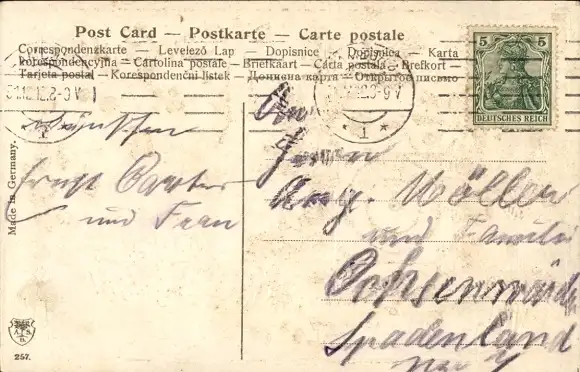 Post Card – Postkarte – Carte postale
Correspondenzkarte – Levelező Lap – Dopisnice – Dopisnica – Karta
korespondencyjna – Cartolina postale – Briefkaart – Carta postala – Brefkort –
Tarjeta postal – Korespondenční listek – Дописна карта – Открытое письмо
5 5
DEUTSCHES REICH
1
1
wünschen
Ernst
und Frau
An
Aug. Möller
und Familie
Ochsenwärder
Spadenland
Made in Germany.
257.